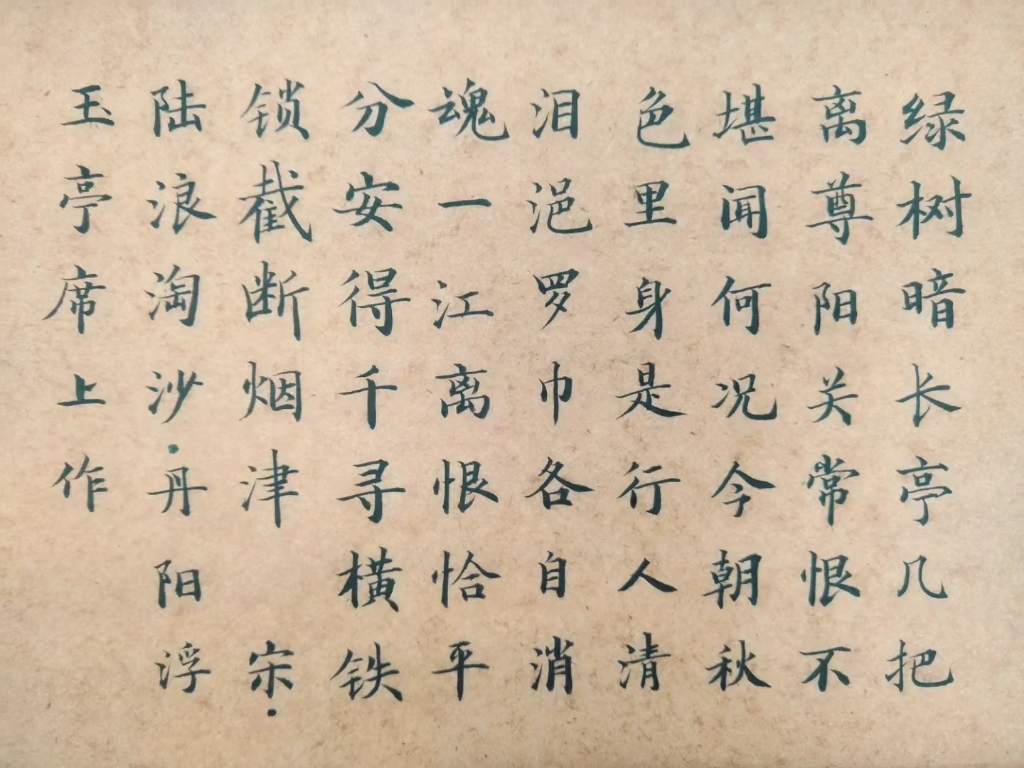 绿树暗长亭几把
离尊阳关常恨不
堪闻何况今朝秋
色里身是行人清
泪浥罗巾各自消
魂一江离恨恰平
分安得千寻横铁
锁截断烟津 宋·
陆浪淘沙·丹阳浮
玉亭席上作